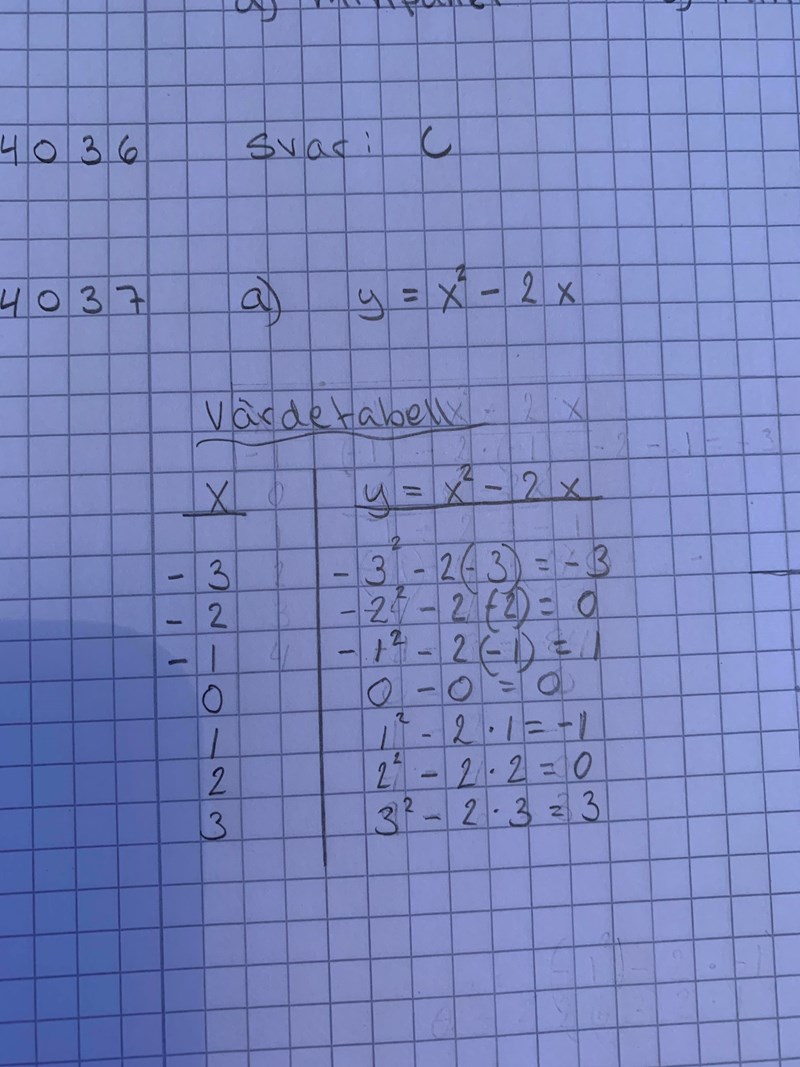 4036 Svar: C
4037 a) y = x² - 2x
Värdetabell
x y = x² - 2x
-3 -3² - 2(-3) = -3
-2 -2² - 2(-2) = 0
-1 -1² - 2(-1) = 1
0 0 - 0 = 0
1 1² - 2·1 = -1
2 2² - 2·2 = 0
3 3² - 2·3 = 3